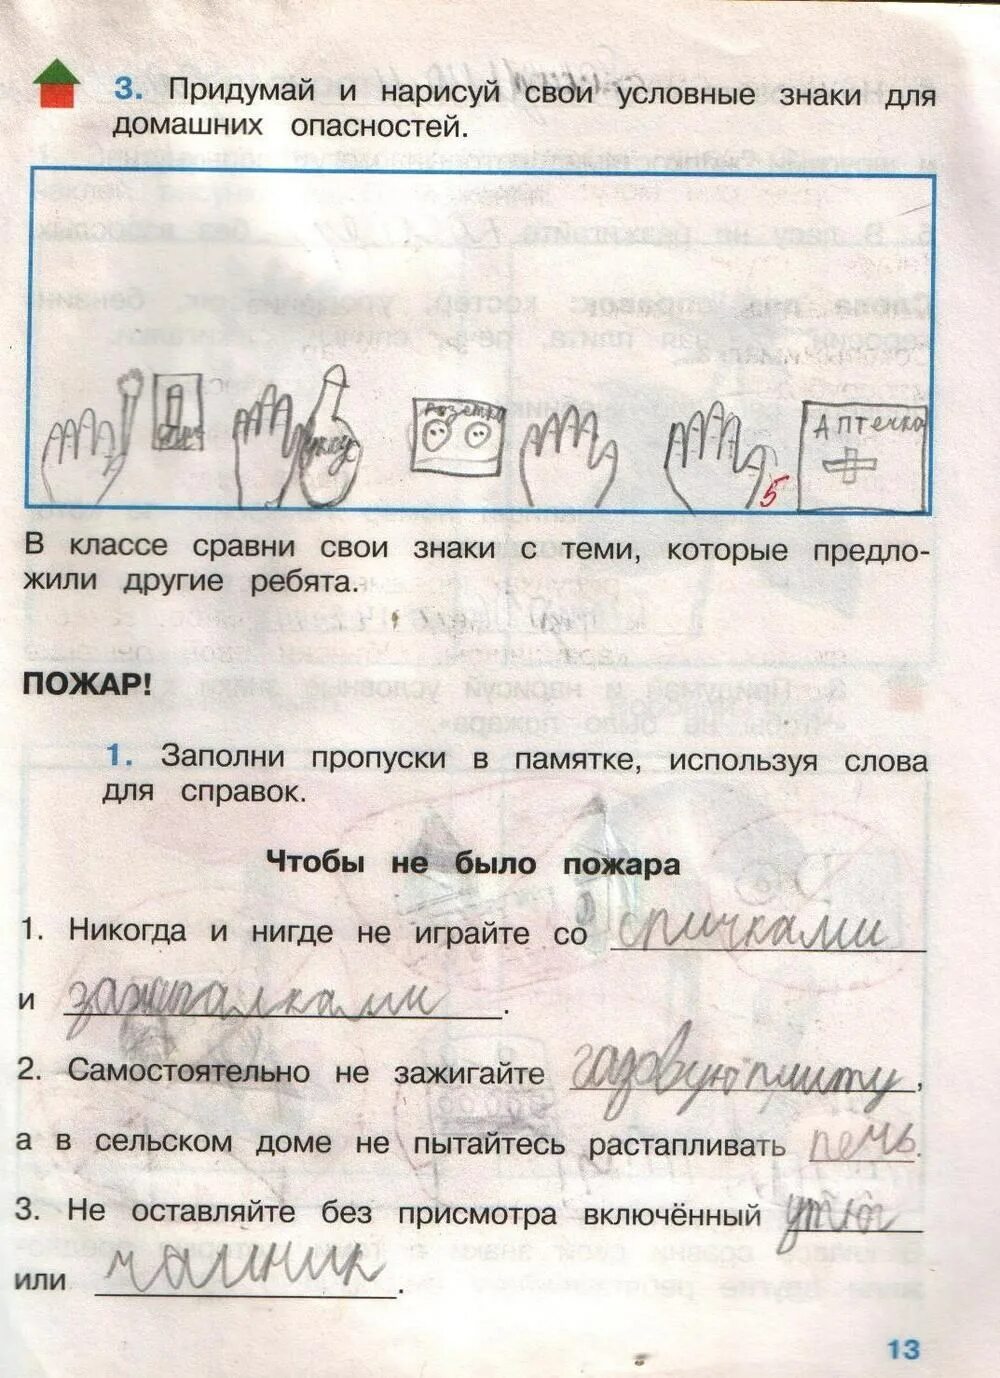 3. Придумай и нарисуй свои условные знаки для
домашних опасностей.
розетка
Аптечка
уксус
5
В классе сравни свои знаки с теми, которые предло-
жили другие ребята.
ПОЖАР!
1. Заполни пропуски в памятке, используя слова
для справок.
Чтобы не было пожара
1. Никогда и нигде не играйте со спичками
и зажигалками.
2. Самостоятельно не зажигайте газовую плиту,
а в сельском доме не пытайтесь растапливать печь.
3. Не оставляйте без присмотра включённый утюг
или чайник.
13